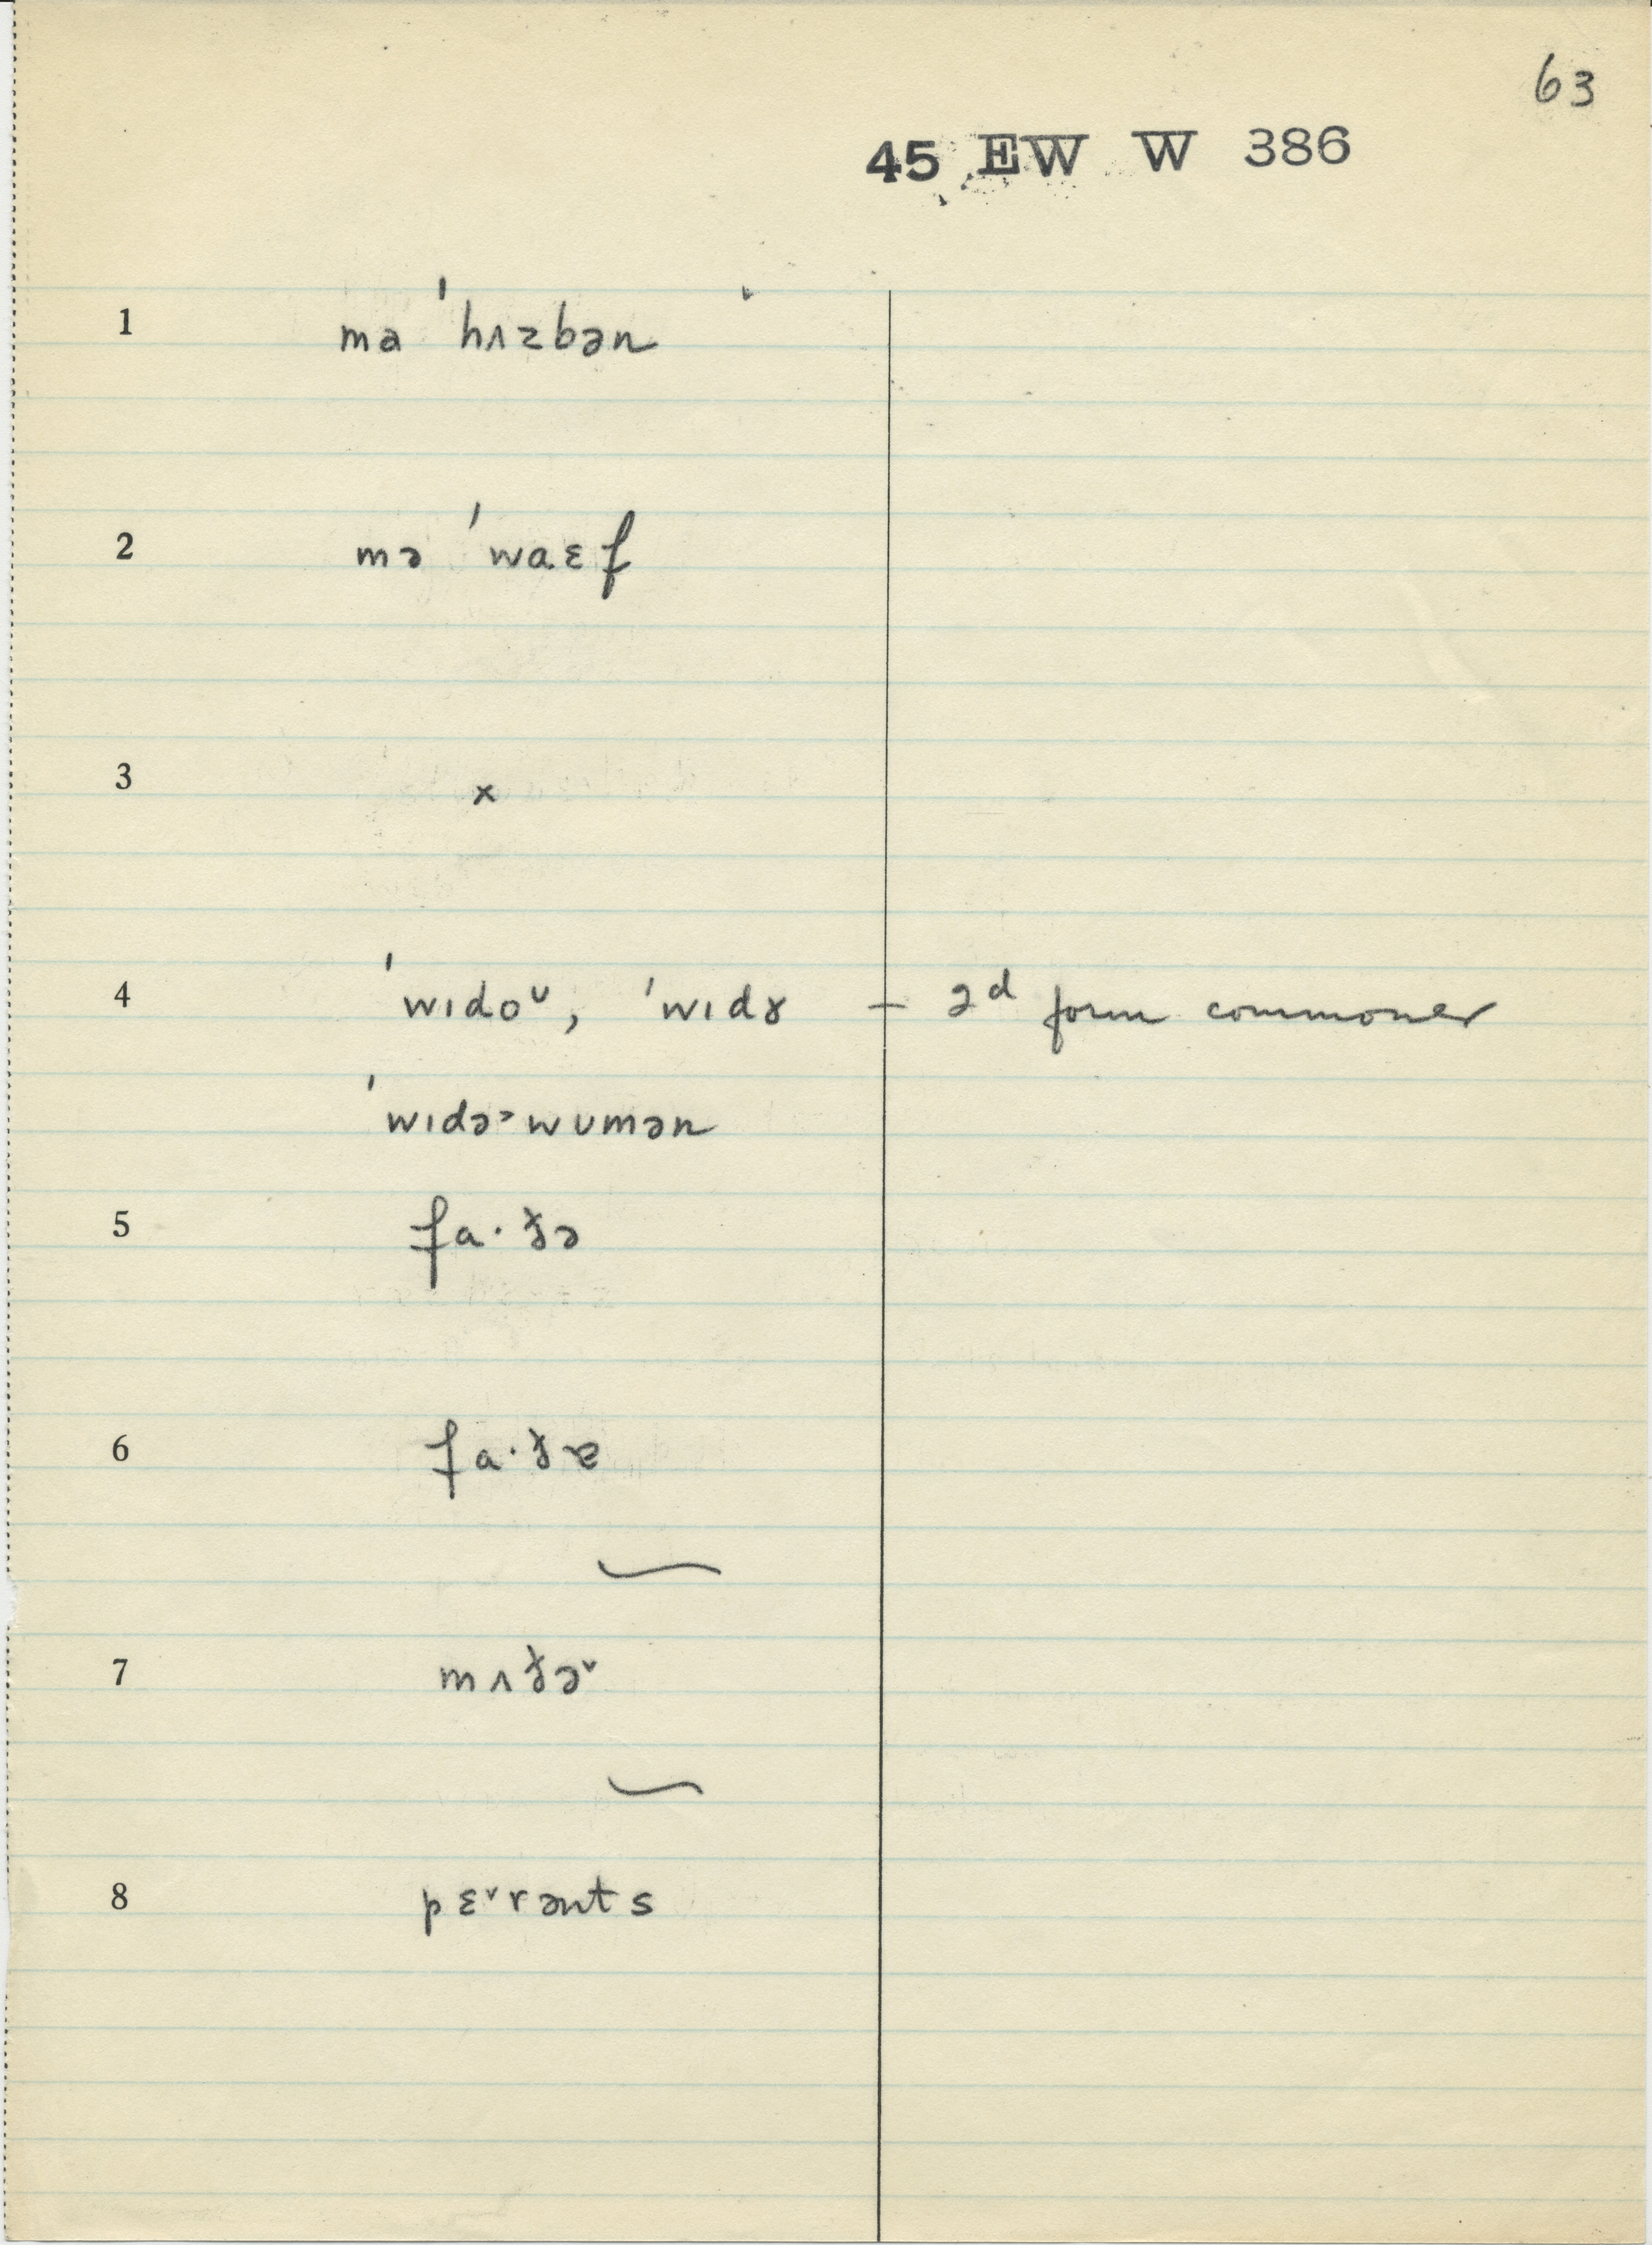 63
45 EW W 386
1 mə ˈhʌzbən
2 mə ˈwaɛf
3 x
4 ˈwɪdoᶷ, ˈwɪdɤ — 2d form commoner
ˈwɪdə˃wʊmən
5 fa·ðə
6 fa·ðɐ
7 mʌðə˅
8 pɛ˅rənts